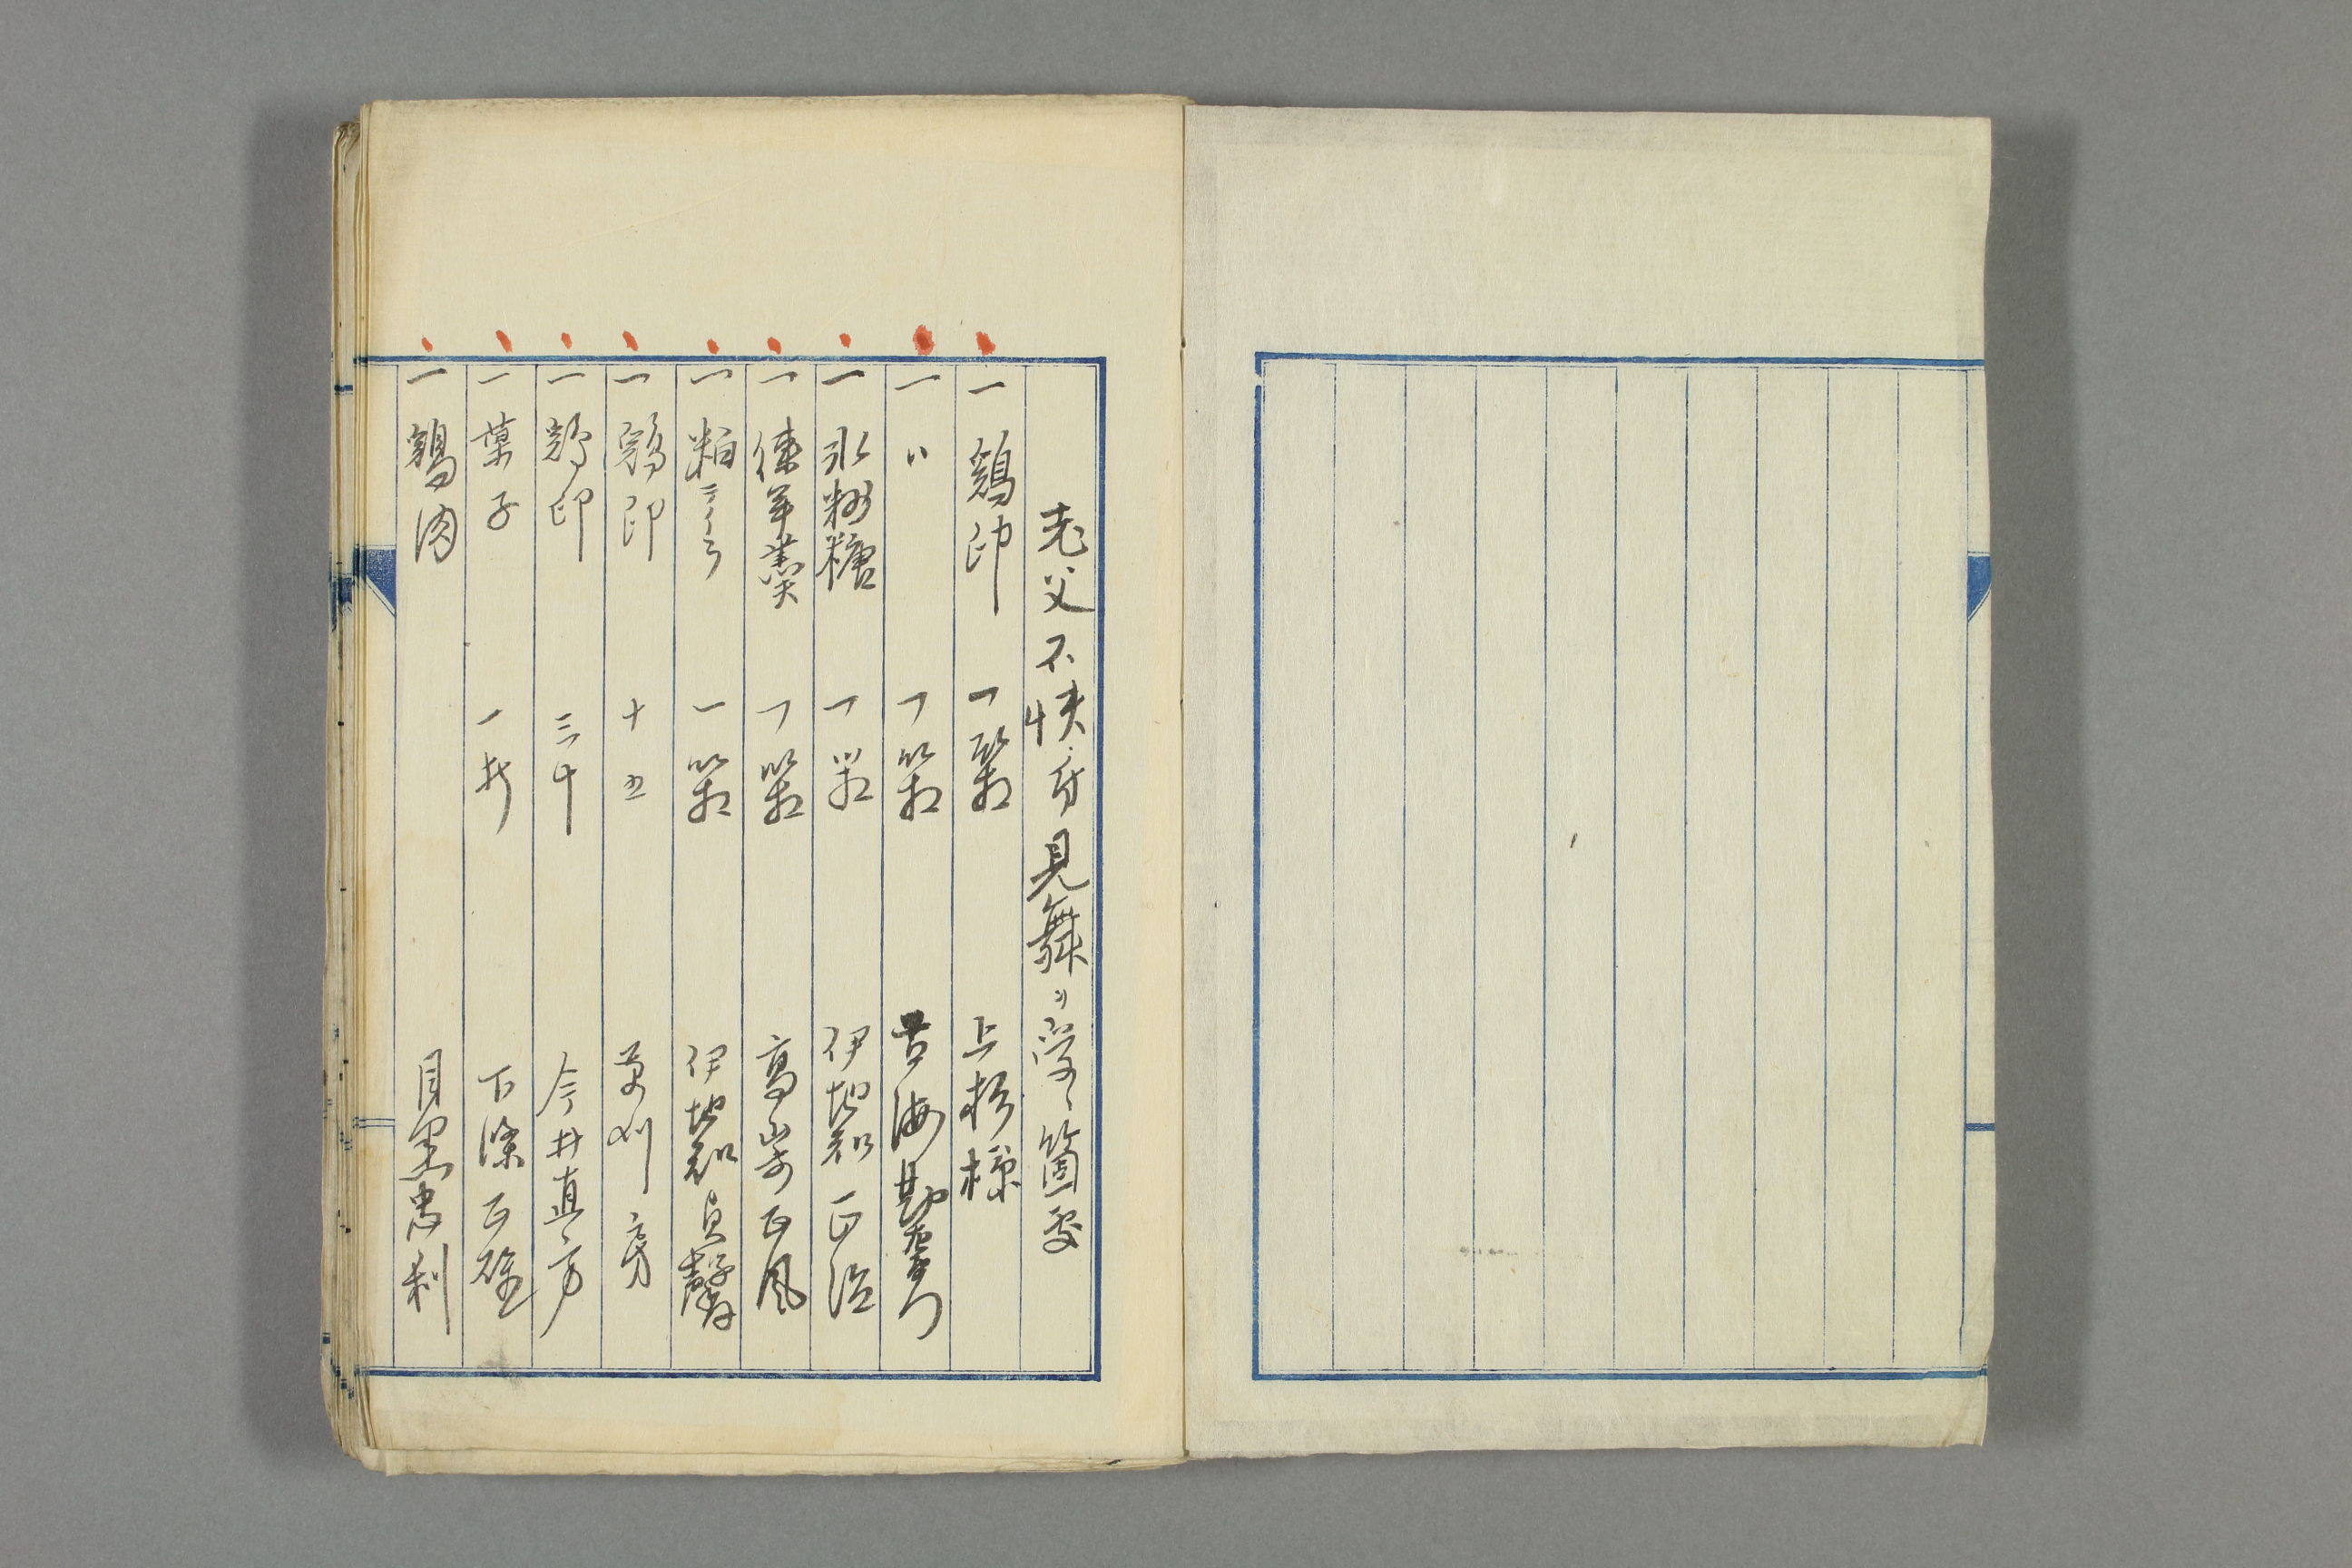 老父不快ニ付見舞ニ受ル箇處
一 鶏卵 一箱 上杉様
一 〃 一箱 吉海勘右衛門
一 氷砂糖 一箱 伊地知正治
一 煉羊羹 一箱 高崎正風
一 粕 一箱 伊地知貞馨
一 鶏卵 十五 草刈
一 鶏卵 三十 今井直方
一 菓子 一折 下條正雄
一 鶏肉 目黒忠利